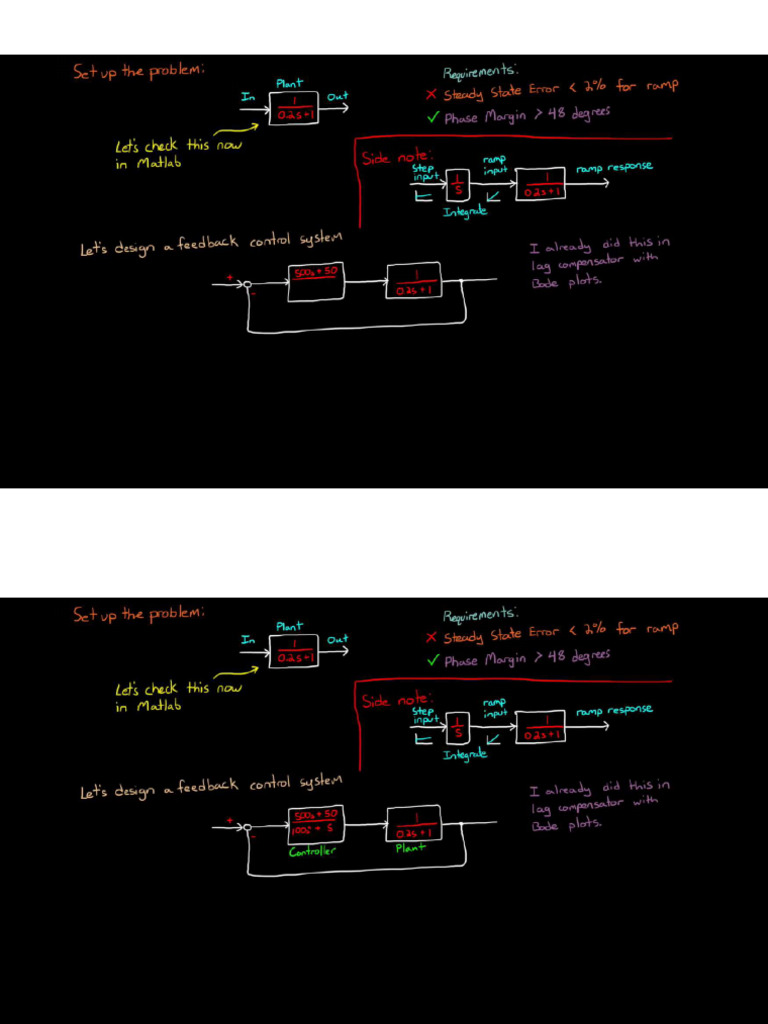 Set up the problem:
Plant
In
1
0.2s+1
Out
Let's check this now
in Matlab
Requirements:
✗ Steady State Error < 2% for ramp
✓ Phase Margin > 48 degrees
Side note:
Step
input
1
S
Integrate
ramp
input
1
0.2s+1
ramp response
Let's design a feedback control system
+
-
500s+50
1
0.2s+1
I already did this in
lag compensator with
Bode plots.
Set up the problem:
Plant
In
1
0.2s+1
Out
Let's check this now
in Matlab
Requirements:
✗ Steady State Error < 2% for ramp
✓ Phase Margin > 48 degrees
Side note:
Step
input
1
S
Integrate
ramp
input
1
0.2s+1
ramp response
Let's design a feedback control system
+
-
500s+50
Controller
1
0.2s+1
Plant
I already did this in
lag compensator with
Bode plots.